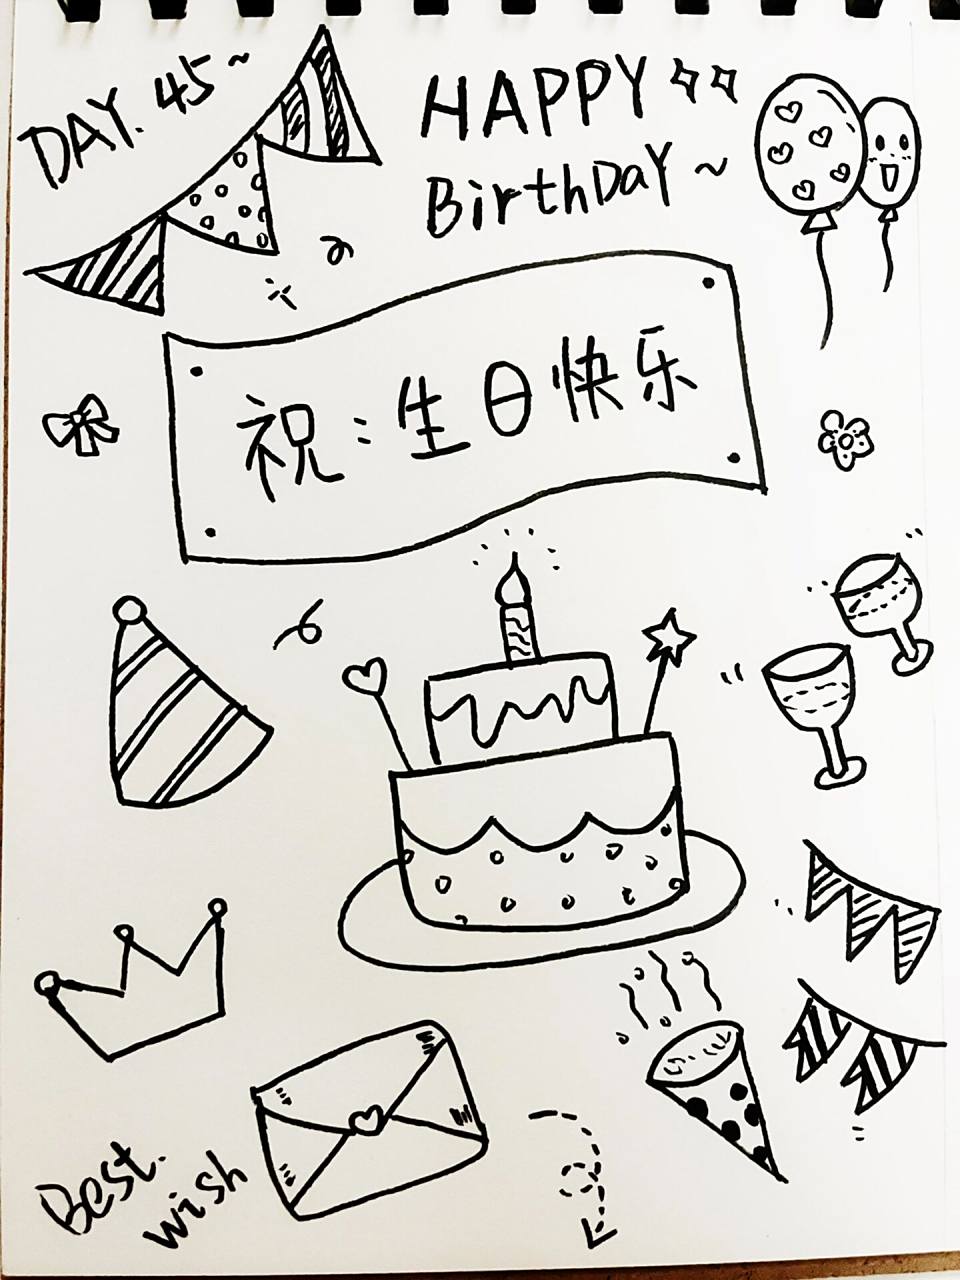 DAY. 45~
HAPPY
BirthDaY ~
祝:生日快乐
Best.
wish